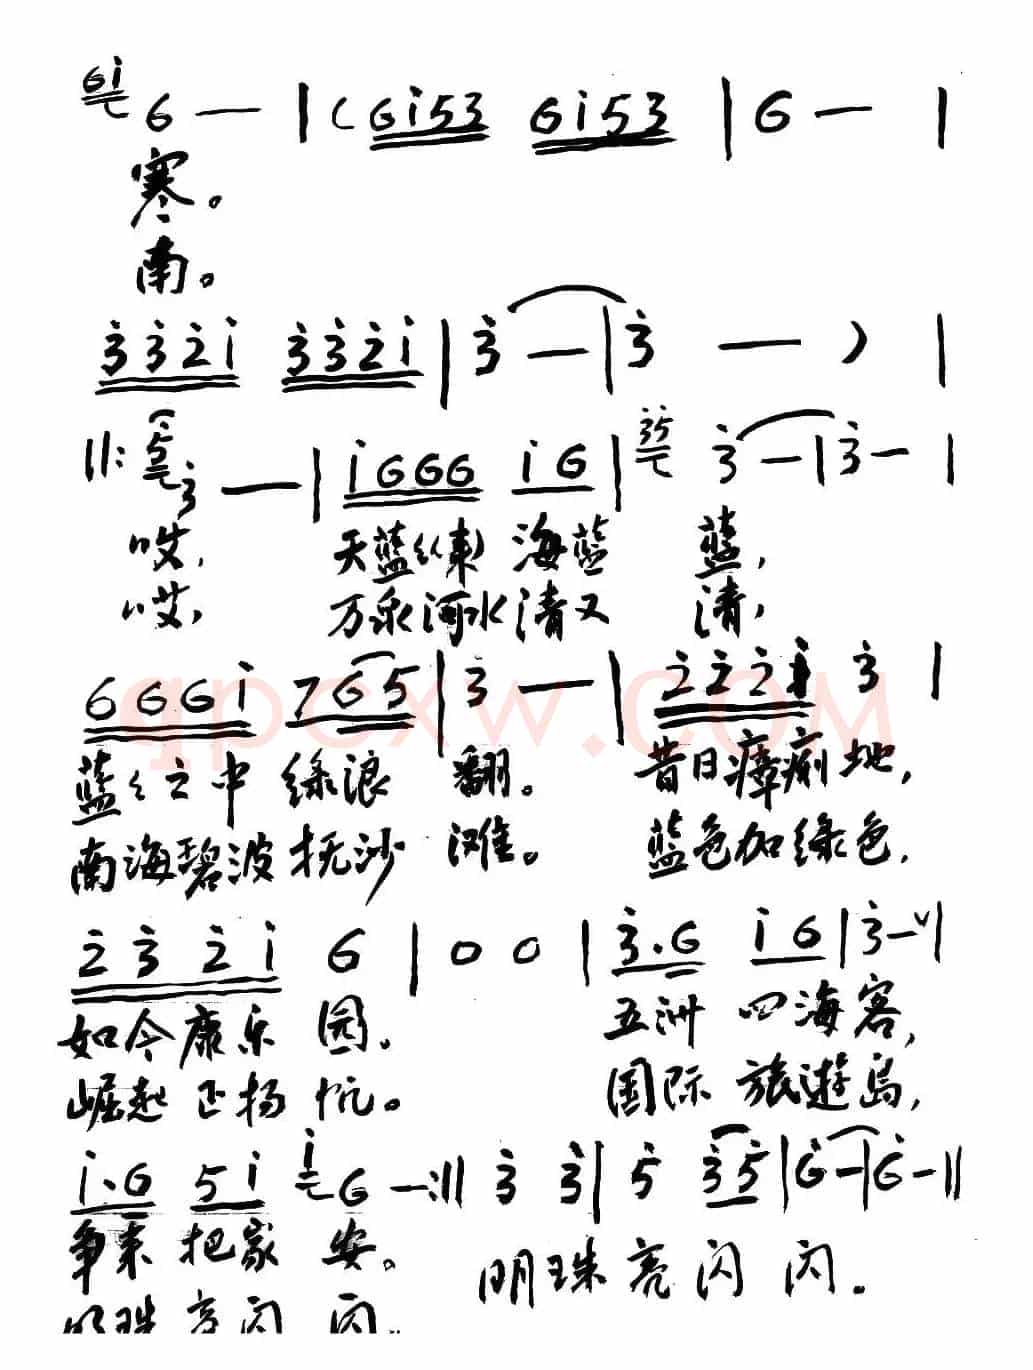 6 — | ( 6i53 6i53 | 6 — |
寒。
南。
3321 3321 | 3 — | 3 — ) |
||: 3 — | i666 i6 | 3 — | 3 — |
哎, 天蓝 海蓝 蓝,
哎, 万泉河水清又 清,
666i 765 | 3 — | 222i 3 |
蓝〻之中 绿浪 翻。 昔日瘴痢地,
南海碧波抚沙 滩。 蓝色加绿色,
232i 6 | 0 0 | 3.6 i6 | 3 — ||
如今康乐 园. 五洲 四海客,
崛起正扬帆。 国际 旅遊岛,
i.6 5i 6 — :|| 3 3 | 5 35 | 6 — | 6 — ||
争来 把家 安。 明珠亮闪 闪.
明珠 亮闪 闪.
qpcxw.com